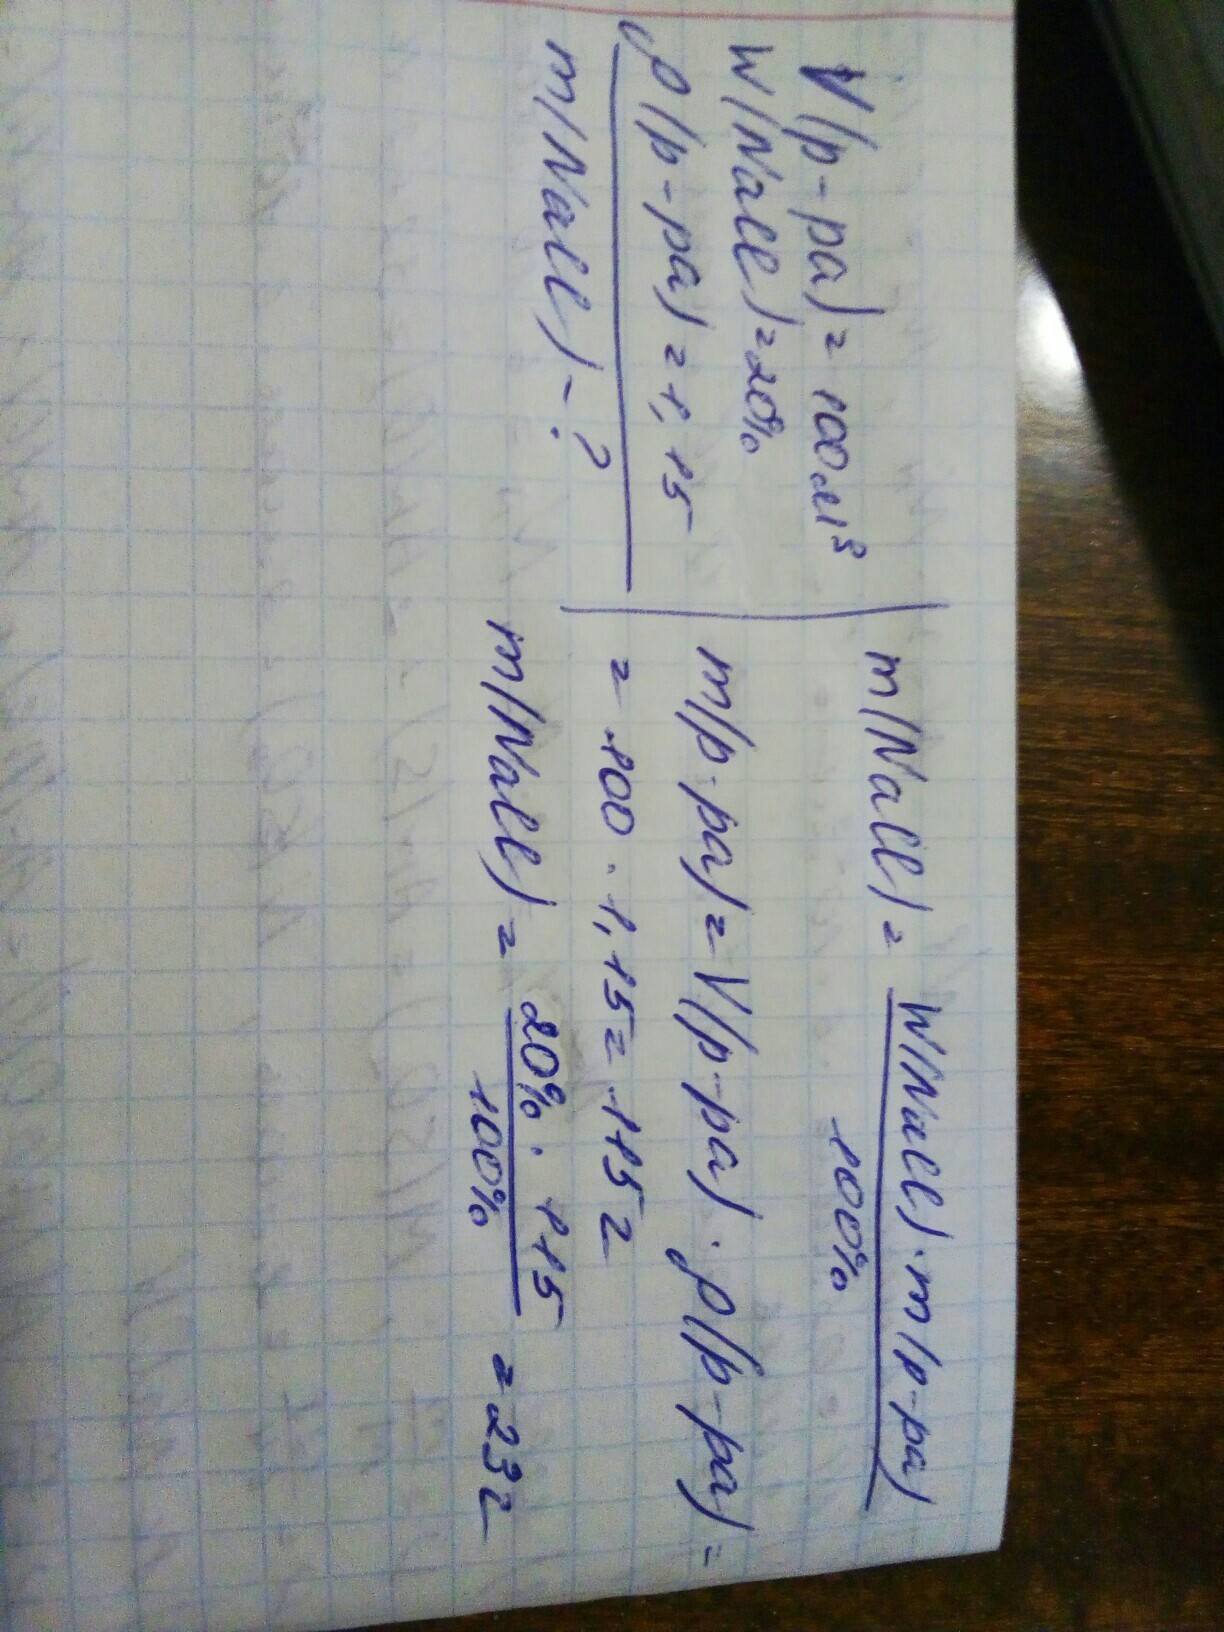 V(р-ра) = 100 мл³
W(NaCl) = 20%
ρ(р-ра) = 1,15
m(NaCl) - ?
m(NaCl) = W(NaCl) · m(р-ра) / 100%
m(р-ра) = V(р-ра) · ρ(р-ра) =
= 100 · 1,15 = 115 г
m(NaCl) = 20% · 115 / 100% = 23 г